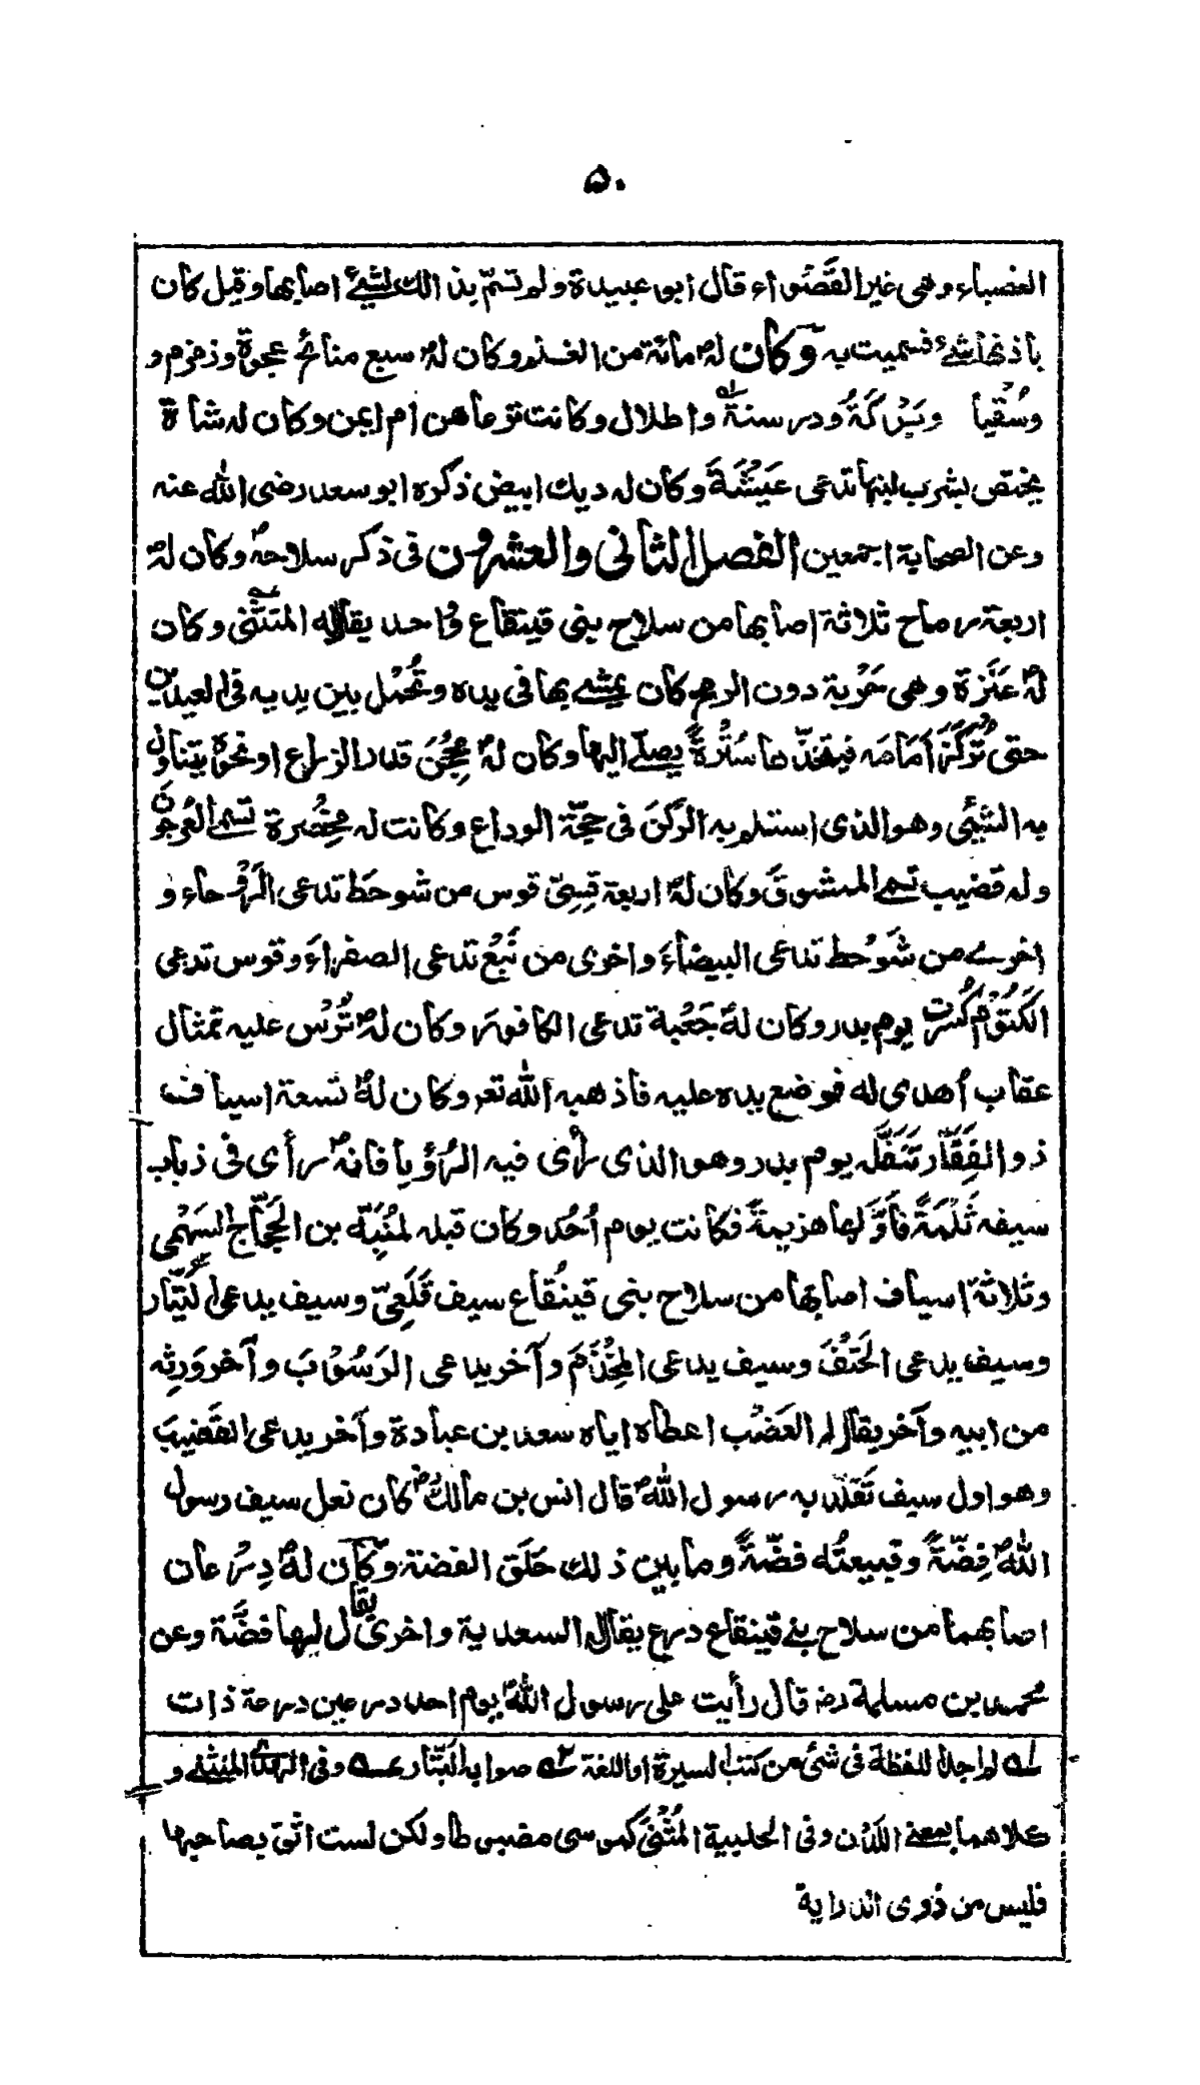 ۵۰
العضباء وهى غير القَصْواء قال ابو عبيدة ولم تسمّ بذالك لشئ اصابها وقيل كان
باذنها شئ فسميت به وَكان لهٗ مائة من الغنم وكان لهٗ سبع منائح عجوة وزمزم و
وسُقْيا وبَرَكَةُ ودرسنةؔ واطلال وكانت ترعاهن ام ايمن وكان له شاة
يختص بشرب لبنها تدعى عَيْثَةَ وكان له ديك ابيض ذكره ابو سعد رضى الله عنه
وعن الصحابة اجمعين الفصل الثانى والعشرون فى ذكر سلاحهؐ وكان لهٗ
اربعة رماح ثلاثة اصابها من سلاح بنى قينقاع وواحد يقال له المتثنى وكان
لهٗ عَنَزة وهى حَرْبة دون الرمح كان يمشے بها فى يده وتُحْمَل بين يديه فى العيدين
حتى تُرْكَزَ اَمَامَه فيتخذها سُتْرةً يصلّے اليها وكان لهٗ مِحْجَنَ قدر الزراع او نحوه يتناول
به الشيئ وهو الذى استلم به الركنَ فى حجّة الوداع وكانت له مِخْصَرة تسمے العُرجُونَ
وله قضيب تسمے الممشوقَ وكان لهٗ اربعة قِسِىّ قوس من شوحَط تدعى الرَّوْحاء و
اخرے من شَوْحط تدعى البيضاءَ واخرى من نَبْعٍ تدعى الصفراءَ وقوس تدعى
الكَتُوْمَ كُسِرَت يوم بدر وكان لهٗ جَعْبة تدعى الكافور وكان لهٗ تُرْس عليه تمثال
عقاب اُهدى له فوضع يده عليه فاذهبه الله تعـ وكان لهٗ تسعة اسياف
ذو الفِقَار تَنَفَّلَه يوم بدر وهو الذى رأى فيه الرُؤيا فانهٗ رأى فى ذباب
سيفه ثَلْمَةً فاَوَّلها هزيمةً فكانت يوم اُحُد وكان قبله لمُنَبِّه بن الحَجّاج السَهْمى
وثلاثة اسياف اصابها من سلاح بنى قينُقاع سيف قَلَعِىّ وسيف يدعى
وسيف يدعى الحَتْفَ وسيف يدعى المِخْذَمَ وآخر يدعى الرَسُوْبَ وآخر وَرِثه
من ابيه وآخر يقال له العَضْب اعطاه اياه سعد بن عبادة وآخر يدعى القضيبَ
وهو اول سيف تَقَلّد به رسول اللهؐ قال انس بن مالكؓ كان نعل سيف رسول
اللهؐ فِضّةً وقبيعتُه فضّةً وما بين ذلك حَلَق الفضة وَكان لهٗ دِرْعان
اصابهما من سلاح بنے قينقاع درع يقال السعدية واخرى يقال لها فضّة وعن
محمد بن مسلمة رضـ قال رأيت على رسول اللهؐ يوم احد درعين درعه ذات
لہ لم اجد اللفظة فى شئ من كتب السيرة او اللغة ٢ہ صوابه البتّار ٣ہ وفى المنثنى و
كلاهما بمعنے اللدن وفى الحلبية المُثْنىَ كموسى مضبوطا ولكن لست اثق بصاحبها
فليس من ذوى الدراية